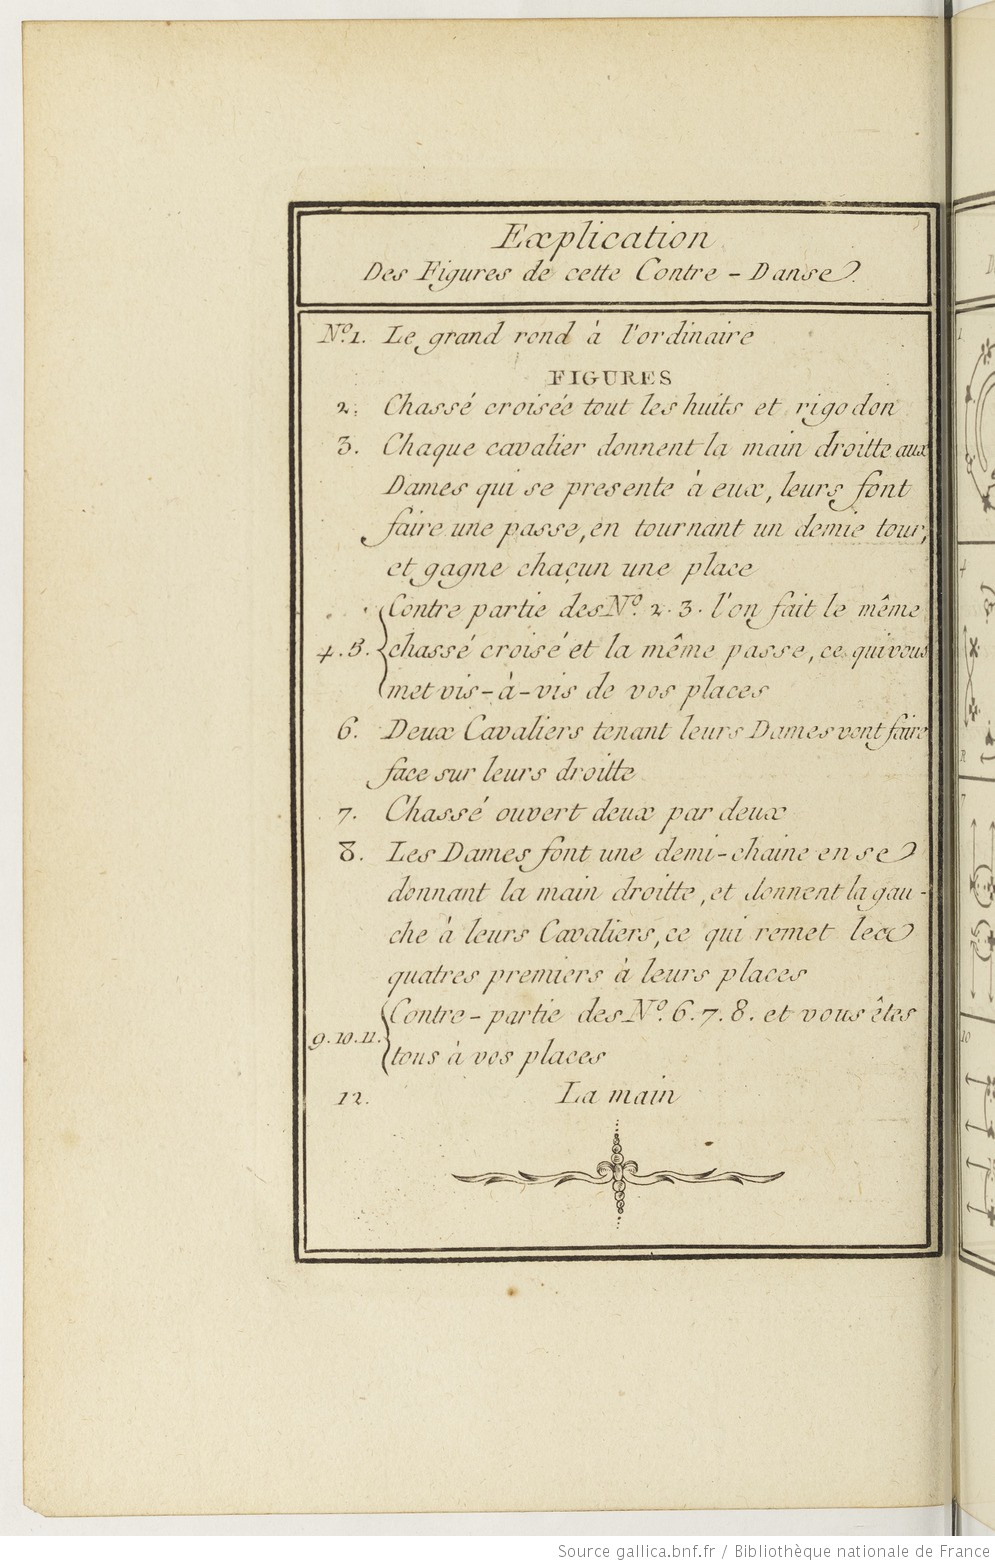 Explication
Des Figures de cette Contre - Danse.
N.º 1. Le grand rond à l'ordinaire
FIGURES
2. Chassé croisée tout les huits et rigodon
3. Chaque cavalier donnent la main droitte aux
Dames qui se presente à eux, leurs font
faire une passe, en tournant un demie tour,
et gagne chaçun une place
Contre partie des N.º 2. 3. l'on fait le même
4. 5. chassé croisé et la même passe, ce qui vous
met vis-à-vis de vos places
6. Deux Cavaliers tenant leurs Dames vont faire
face sur leurs droitte
7. Chassé ouvert deux par deux
8. Les Dames font une demi-chaine en se
donnant la main droitte, et donnent la gau-
che à leurs Cavaliers, ce qui remet les
quatres premiers à leurs places
Contre-partie des N.º 6. 7. 8. et vous êtes
9. 10. 11. tous à vos places
12. La main
1
4
7
10
Source gallica.bnf.fr / Bibliothèque nationale de France